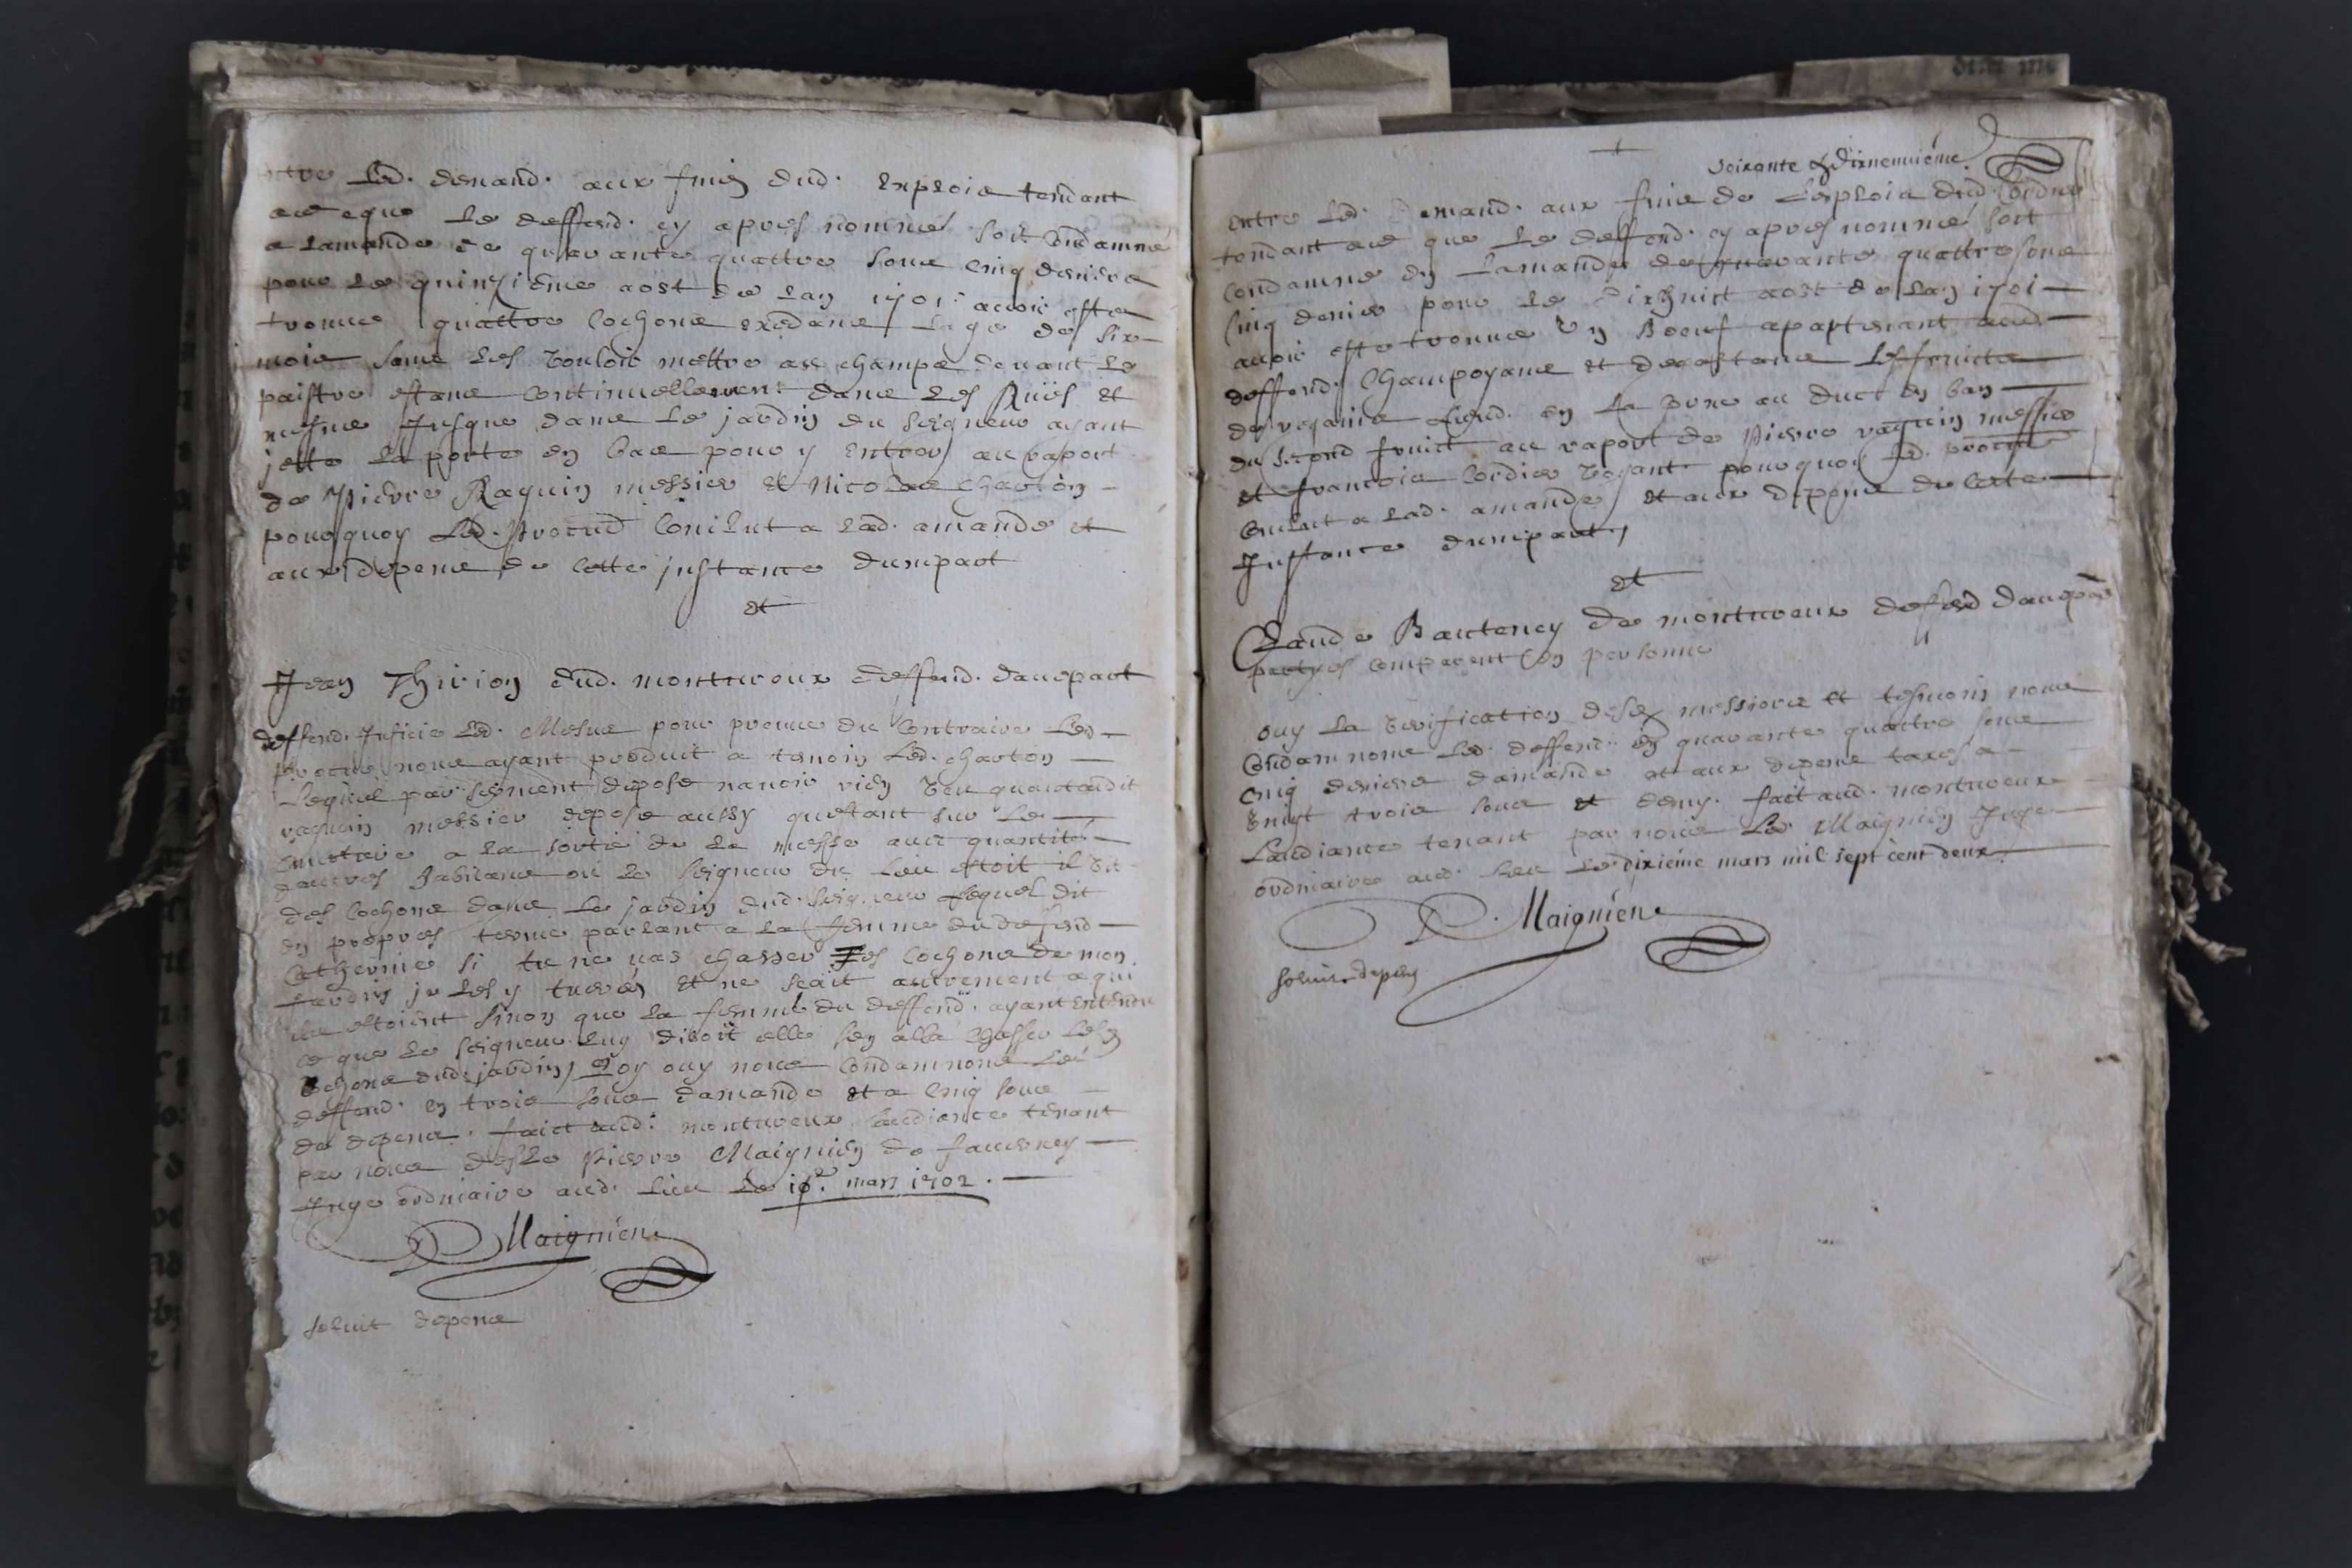 Entre led. demand. aux fins dud. exploict tendant
ad ce que le deffend. cy apres nommé soit condamné
a lamande de quarante quattre sous cinq deniers
pour le quinzieme aost de lan 1701 avoir esté
trouvé quattre cochons excedans lage de six
mois sans les vouloir mettre au champs devant le
paistre estans continuellement dans les Ruës et
mesme jusque dans le jardin du seigneur ayant
jetté la porte en bas pour y entrer au raport
de Pierre Raguin messier et Nicolas Charton
pourquoy led. Procur conclut a lad. amande et
aux depens de cette instance dunepart
et
Jean Thirion dud. montureux deffend. daupart
deffend. Inficie led. Mesus pour preuve du contraire led.
procur nous ayant produit a temoin led. charton
Lequel par serment depose navoir rien veu quant audit
raguin messier depose aussy questant sur le
cimetiere a la sortie de la messe avec quantité
dautres habitans où le seigneur du lieu etoit il vit
des cochons dans le jardin dud. seigneur lequel dit
en propres terme parlant a la femme du defend
Catherine si tu ne vas chasser tes cochons de mon
Jardin je les y tuerés et ne scait autrement a qui
ils etoient sinon que la femme du deffend. ayant entendu
ce que le seigneur luy disoit elle sen alla chasser lesd
cochons dud. jardin, Quoy ouy nous condamnons led
deffend. en trois sous damande et a cinq sous
de depens. faict aud. montureux laudiance tenant
par nous Pierre Maignien de faverney
Juge ordinaire aud. lieu le 10e. mars 1702.
Maignien
soluit depens
soixante & dixneuviéme
Entre led. demand. aux fins de lexploict dud. Cordier
tendant ad ce que le deffend. cy apres nommé soit
condamné en lamande de quarante quattre sous
cinq deniers pour le dixhuict aost de lan 1701
avoir esté trouvé un Boeuf apartenant aud.
deffend. champoyans et devastans les fruicts
de en la au duct en ban
du second fruict au raport de Pierre raguin messier
et francois Cordier pourquoy led. procur
conclut a lad. amande, et aux depens de cette
Instance dunepart,
et
Claude Bauteney de montureux defend daupar
partyes comparent en personne
ouy la verification desd. messiers et tesmoin nous
Condamnons led. deffend. en quarante quattre sous
cinq deniers damande et aux depens taxes a
vingt trois sous et demy. fait aud. montureux
Laudiance tenant par nous Le Maignien Juge
ordinaire aud. lieu le dixiéme mars mil sept cent deux.
Maignien
soluit depens